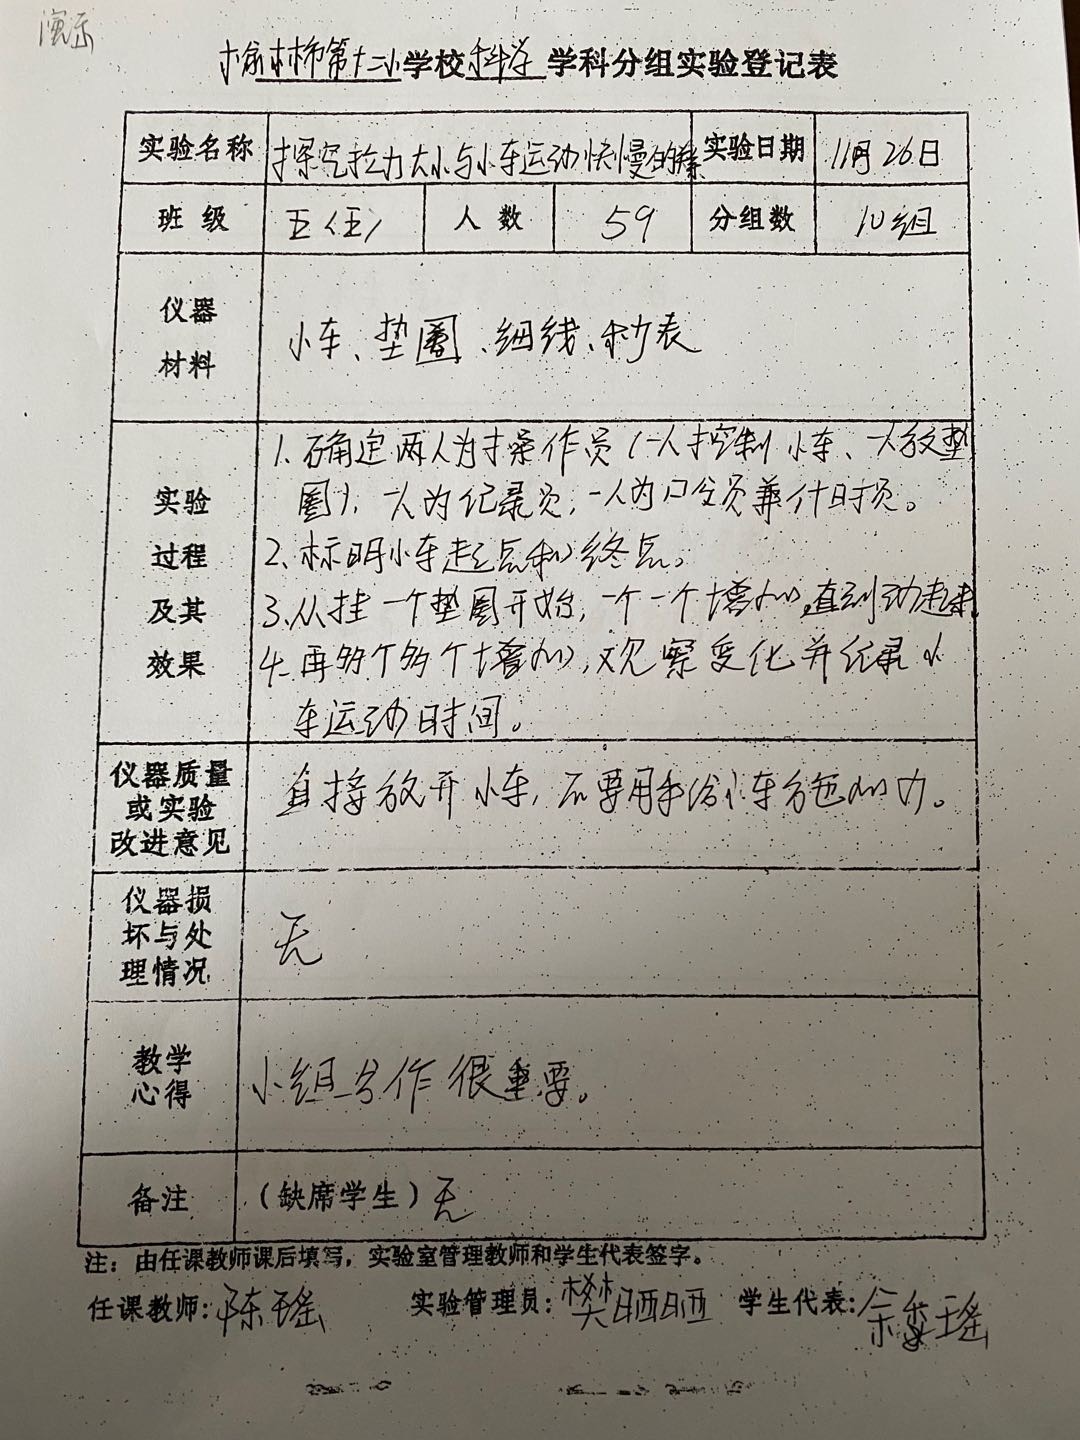 演示
榆林市第十二小学校科学学科分组实验登记表
实验名称 探究拉力大小与小车运动快慢的 实验日期 11月26日
班级 五(五) 人数 59 分组数 10组
仪器
材料
小车、垫圈、细线、秒表
实验
过程
及其
效果
1.确定两人为操作员(一人控制小车、一人放垫
圈),一人为记录员,一人为口令员兼计时员。
2、标明小车起点和终点。
3.从挂一个垫圈开始,一个一个增加,直到动起来
4.再多个多个增加,观察变化并纪录小
车运动时间。
仪器质量
或实验
改进意见
直接放开小车,不要用手给小车施加力。
仪器损
坏与处
理情况
无
教学
心得
小组合作很重要。
备注 (缺席学生)无
注:由任课教师课后填写,实验室管理教师和学生代表签字。
任课教师:陈瑶 实验管理员:樊晒晒 学生代表:余 瑶